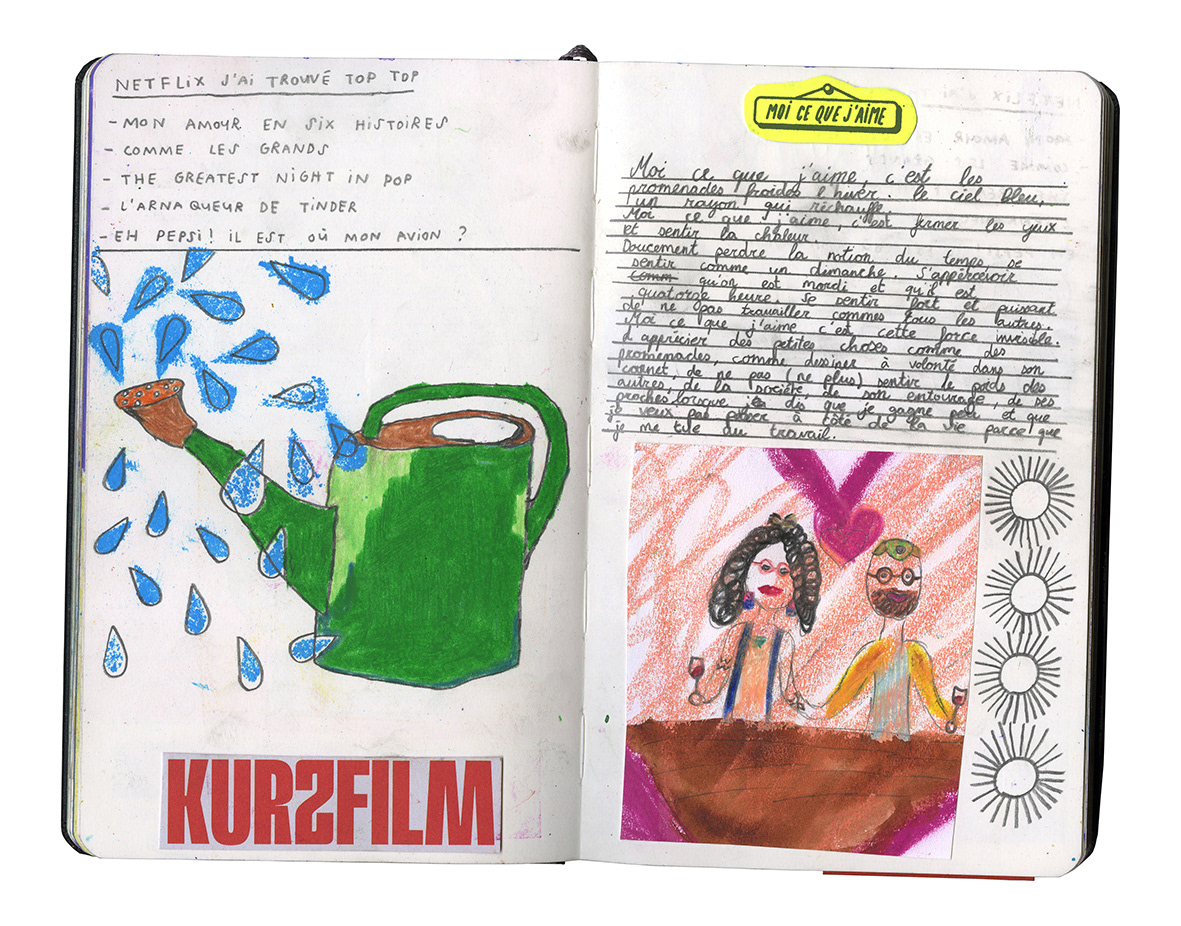 NETFLIX J'AI TROUVÉ TOP TOP
- MON AMOUR EN SIX HISTOIRES
- COMME LES GRANDS
- THE GREATEST NIGHT IN POP
- L'ARNAQUEUR DE TINDER
- EH PEPSI! IL EST OÙ MON AVION ?
KURSFILM
MOI CE QUE J'AIME
Moi ce que j'aime, c'est les
promenades froides l'hiver. le ciel bleu,
un rayon qui réchauffe
Moi ce que j'aime, c'est fermer les yeux
et sentir la chaleur.
Doucement perdre la notion du temps se
sentir comme un dimanche. S'appercevoir
Comm qu'on est mardi et qu'il est
quatorze heure. Se sentir fort et puissant
de ne pas travailler commes tous les autres.
Moi ce que j'aime c'est cette force invisible.
d'apprécier des petites choses comme des
promenades, comme dessiner à volonté dans son
carnet, de ne pas (ne plus) sentir le poids des
autres, de la société, de son entourage, de ses
proches lorsque je dis que je gagne peu et que
je veux pas passer à côté de la vie parce que
je me tue au travail.